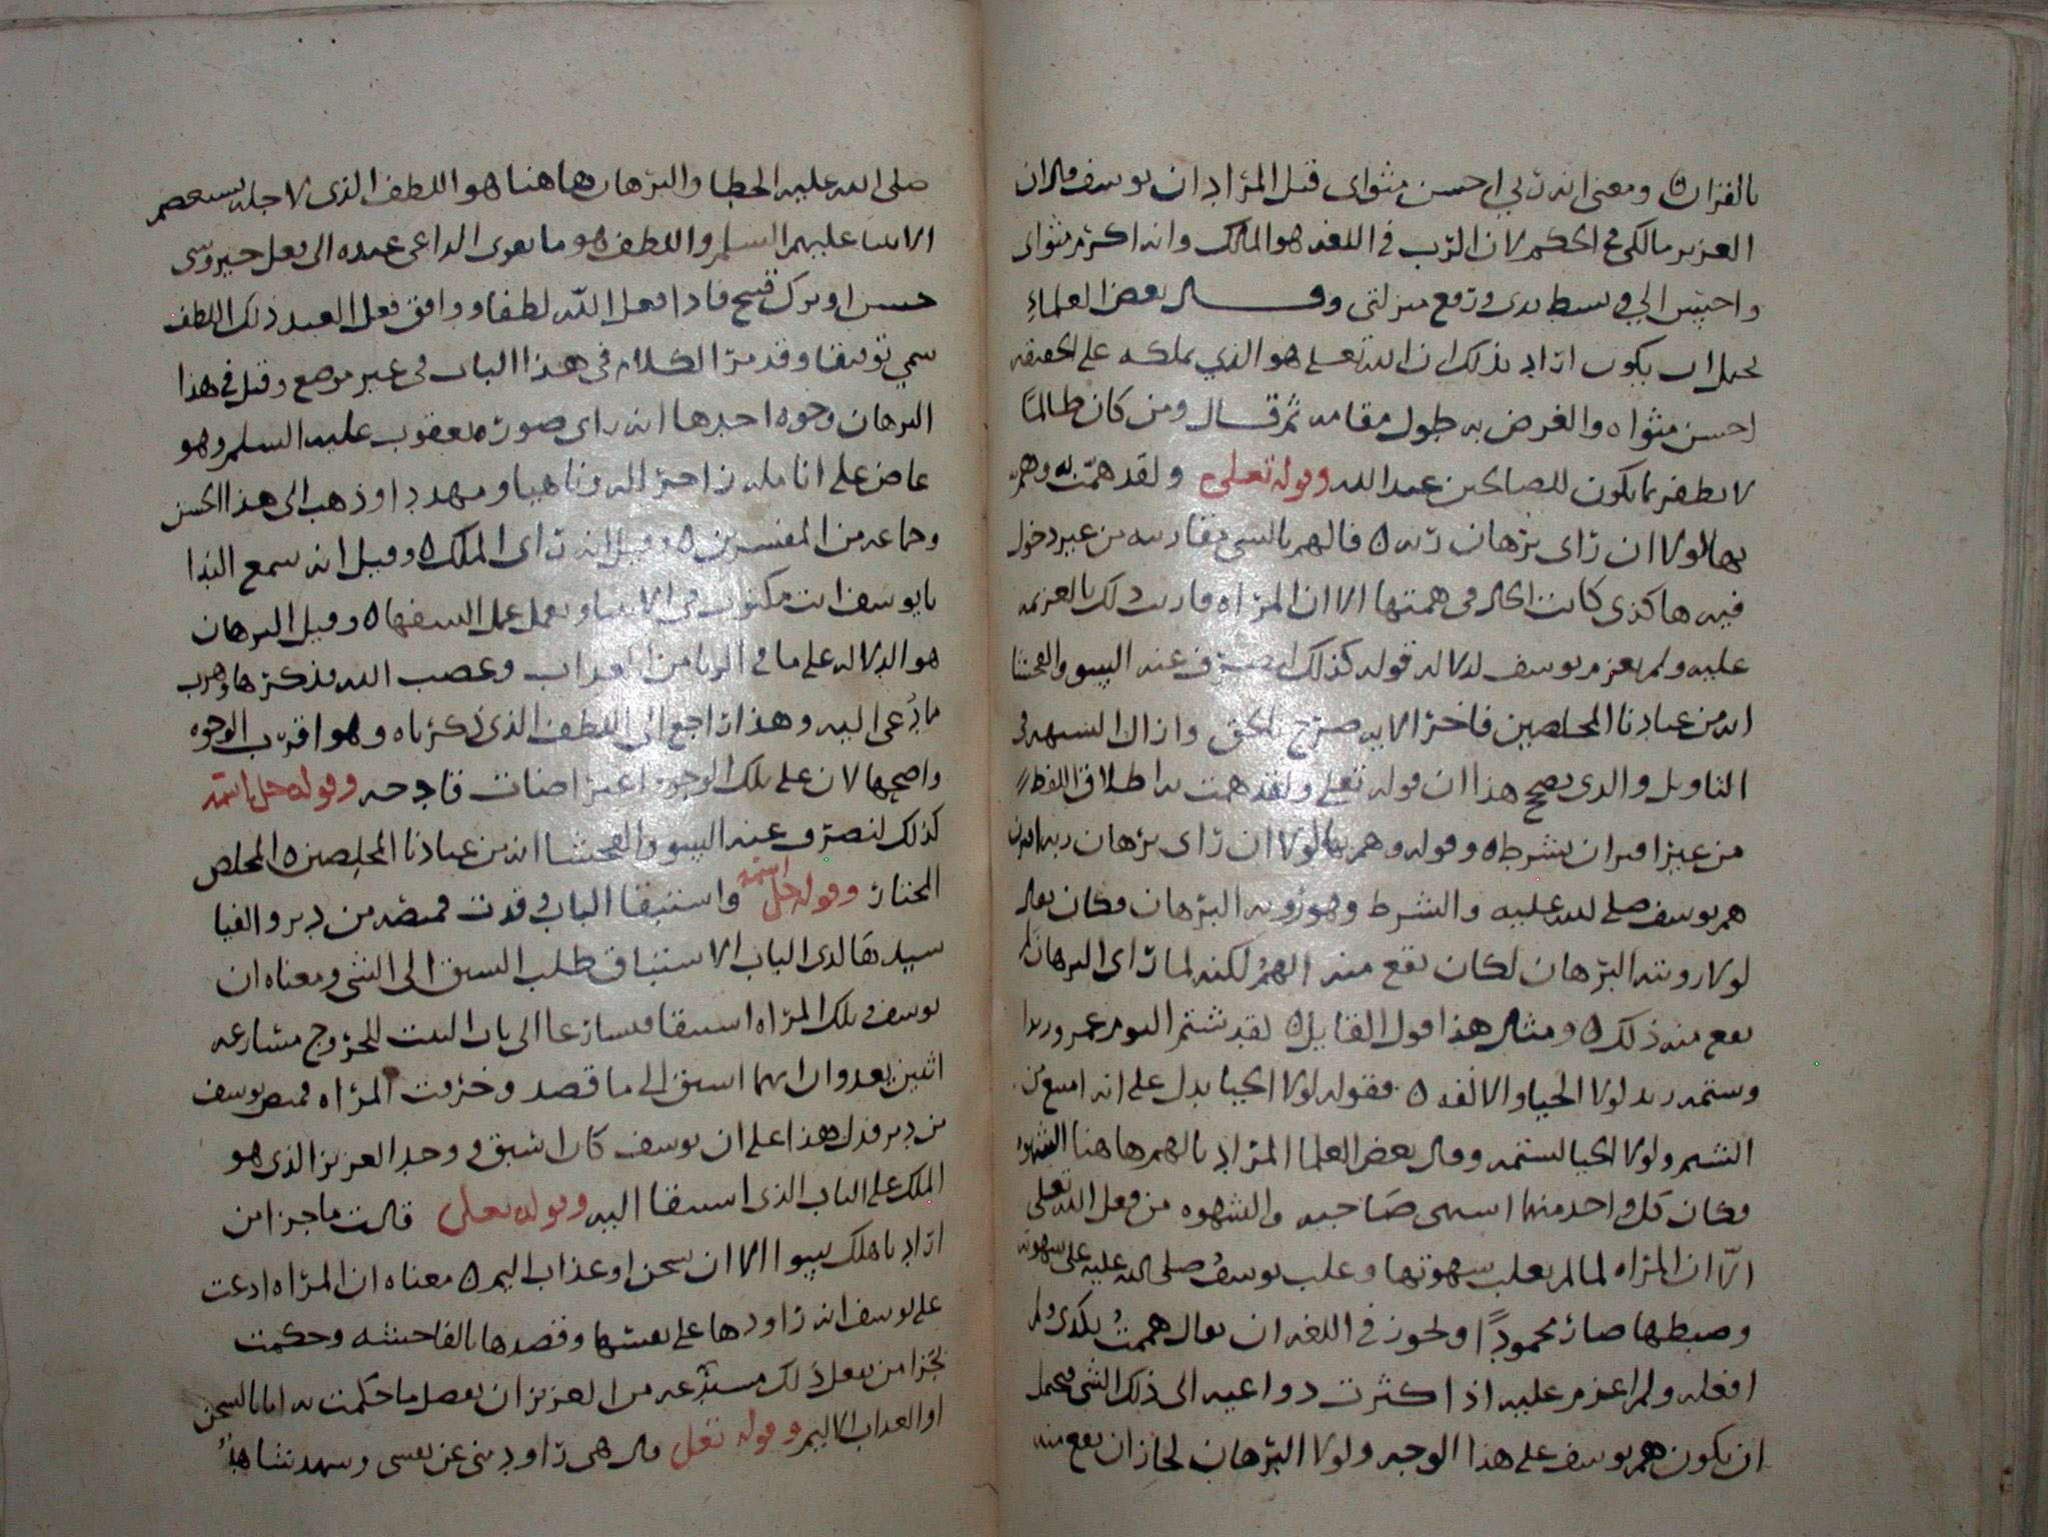 بالقران ٥ ومعنى انه ربي احسن مثواى قيل المراد ان يوسف قال ان
العزيز مالكي في الحكم لان الرب في اللغه هو المالك وانه اكرم مثواى
واحسن الي وبسط يدى ورفع منزلتى وقال بعض العلماءِ
يحتمل ان يكون اراد بذلك ان الله تعلى هو الذي يملكه على الحقيقه
احسن مثواه والغرض به طول مقامه ثم قال ومن كان ظالمًا
لا يظفر بما يكون للصالحين عند الله وقوله تعلى ولقد همّت به وهمّ
بها لولا ان راى برهان ربه ٥ فالهم بالشى مقاربته من غير دخول
فيه هاكذى كانت الحال في همتها الا ان المراه قاربت ذلك بالعزيمه
عليه ولم يعزم يوسف لدلاله قوله كذلك لنصرف عنه السو والفحشا
انه من عبادنا المخلصين فاخر الايه صرّح بالحق وازال الشبهه في
التاويل والذى يصحح هذا ان قوله تعلى ولقد همت به اطلاق اللفظ
من غير اقتران بشرط ٥ وقوله وهم بها لولا ان راى برهان ربه اقترن
هم يوسف صلى الله عليه والشرط وهو رويه البرهان فكان يقال
لولا رويته البرهان لكان يقع منه الهمُ لكنه لما راى البرهان لم
يقع منه ذلك ٥ ومثال هذا قول القايل ٥ لقد شتم اليوم عمرو زيدا
وشتمه زيد لولا الحيا والانفه ٥ فقوله لولا الحيا يدل على انه امتنع من
الشتم ولولا الحيا لشتمه وقال بعض العلما المراد بالهم هاهنا الشهوه
فكان كل واحد منهما اشتهى صَاحبه والشهوه من فعل الله تعلى
الّا ان المراه لما لم يغلب شهوتها وغلب يوسفُ صلى الله عليه على شهوته
وضبطها صار محمودًا ويجوز في اللغه ان يقال هممتُ بكذى ولم
افعله ولم اعزم عليه اذا كثرت دواعيه الى ذلك الشى فيحتمل
ان يكون هم يوسف على هذا الوجه ولولا البرهان لجاز ان يقع منه
صلى الله عليه الخطا والبرهان هاهنا هو اللطف الذى لاجله يستعصم
الانبيا عليهم السلم واللطف هو ما يقوى الداعى عنده الى فعل خير وشى
حسن او ترك قبيح فاذا فعل اللّه لطفا ووافق فعل العبد ذلك اللطف
سمي توفيقا وقد مرّ الكلام فى هذا الباب فى غير موضع وقيل في هذا
البرهان وجوه احدها انه راى صورة يعقوب عليه السلم وهو
عاض على انامله زاجرا له وناهيا ومهددا وذهب الى هذا الحسن
وجماعه من المفسرين ٥ وقيل انه راى الملك ٥ وقيل انه سمع الندا
يا يوسف انت مكتوب في الانبيا وتعمل عمل السفها ٥ وقيل البرهان
هو الدلاله على ما في الزنا من العذاب وغضب الله فذكرها وهرب
مما دُعى اليه وهذا راجع الى اللطف الذى ذكرناه وهو اقرب الوجوه
واصحها لان على تلك الوجوه اعتراضات قادحه وقوله جل اسمه
كذلك لنصرف عنه السو والفحشا انه من عبادنا المخلصين ٥ المخلص
المختار وقوله جل اسمه واستبقا الباب وقدت قميصه من دبر والفيا
سيدها لدى الباب الاستباق طلب السبق الى الشى ومعناه ان
يوسف وتلك المراه استبقا فتسارعا الى باب البيت للخروج مسارعه
اثنين يعدوان ايهما اسبق الى ما قصد وخرقت المراه قميص يوسف
من دبر فدل هذا على ان يوسف كان اسبق ووجد العزيز الذى هو
الملك على الباب الذى استبقا اليه وقوله تعلى قالت ما جزا من
اراد باهلك سوا الا ان يسجن او عذاب اليم ٥ معناه ان المراه ادعت
على يوسف انه راودها على نفسها وقصدها بالفاحشه وحكمت
بجزا من يفعل ذلك مستدعيه من العزيز ان يفعل ما حكمت به اما بالسجن
او العذاب الاليم وقوله تعلى قال هى راودتنى عن نفسى وشهد شاهدٌ